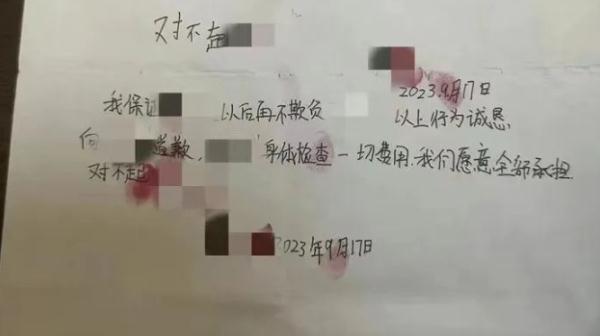 对不起
2023.9月17日
我保证 以后再不欺负 以上行为诚恳
向 道歉, 身体检查一切费用.我们愿意全部承担
对不起
2023年9月17日